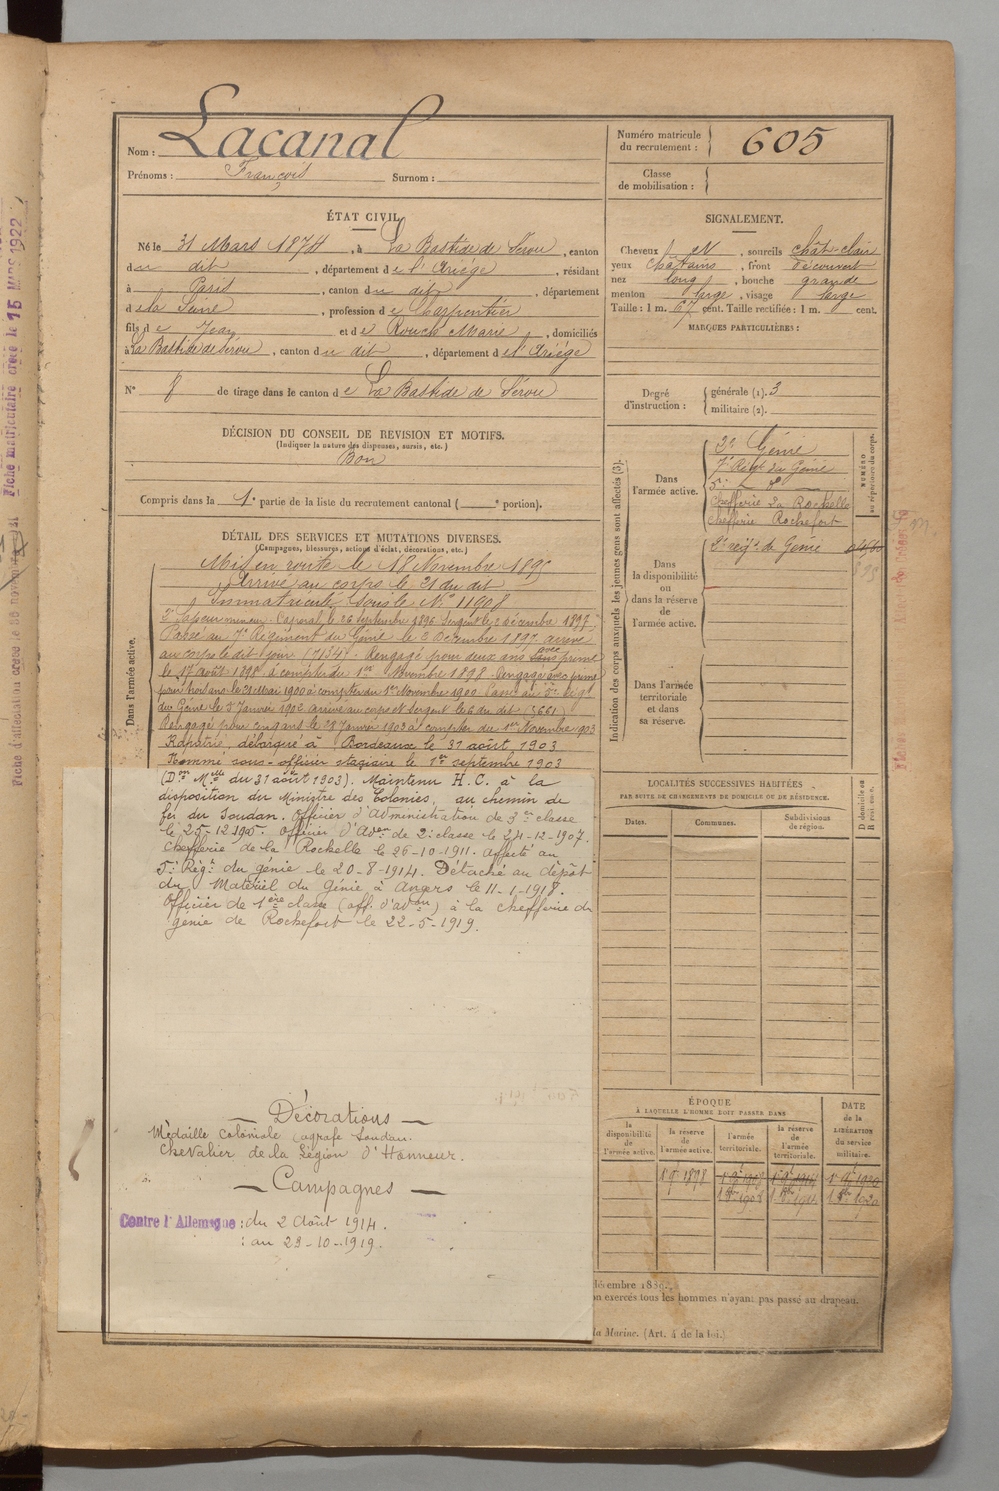 Nom : Lacanal
Prénoms : François Surnom :
Numéro matricule du recrutement : 605
Classe de mobilisation :
ÉTAT CIVIL.
Né le 31 Mars 1874, à La Bastide de Sérou, canton
du dit, département de l'Ariége, résidant
à Paris, canton du dit, département
de la Seine, profession de Charpentier
fils de Jean et de Rouch Marie, domiciliés
à La Bastide de Sérou, canton du dit, département de l'Ariége
N° 8 de tirage dans le canton de La Bastide de Sérou
DÉCISION DU CONSEIL DE REVISION ET MOTIFS.
(Indiquer la nature des dispenses, sursis, etc.)
Bon
Compris dans la 1e partie de la liste du recrutement cantonal ( e portion).
SIGNALEMENT.
Cheveux N, sourcils chât-clair
yeux châtains, front découvert
nez long, bouche grande
menton large, visage large
Taille : 1 m. 67 cent. Taille rectifiée : 1 m. cent.
MARQUES PARTICULIÈRES :
Degré d'instruction : générale (1). 3
militaire (2).
DÉTAIL DES SERVICES ET MUTATIONS DIVERSES.
(Campagnes, blessures, actions d'éclat, décorations, etc.)
Dans l'armée active.
Mis en route le 18 Novembre 1895
Arrivé au corps le 21 du dit
Immatriculé sous le N° 11908
2e Sapeur mineur. Caporal, le 26 septembre 1896. Sergent le 2 décembre 1897.
Passé au 7e Régiment du Génie le 2 Décembre 1897, arrivé
au corps le dit jour (7134). Rengagé pour deux ans sans avec prime
le 17 août 1898 à compter du 1er Novembre 1898. Rengagé avec prime
pour trois ans le 28 Mai 1900 à compter du 1er Novembre 1900. Passé au 5e Régt
du Génie le 3 Janvier 1902 arrivé au corps et Sergent le 6 du dit (5661)
Rengagé pour cinq ans le 28 Janvier 1903 à compter du 1er Novembre 1903
Rapatrié, débarqué à Bordeaux le 31 août 1903
Nommé sous-officier stagiaire le 1er septembre 1903
(Don Mlle du 31 août 1903). Maintenu H.C. à la
disposition du Ministre des Colonies, au chemin de
fer du Soudan. Officier d'Administration de 3e classe
le 25-12-1905. Officier d'Adon de 2e classe le 24-12-1907.
Chefferie de la Rochelle le 26-10-1911. Affecté au
5e Régt du génie le 20-8-1914. Détaché au dépôt
du Matériel du Génie à Angers le 11-1-1918.
Officier de 1ère classe (off. d'adon) à la chefferie du
génie de Rochefort le 22-5-1919.
Décorations
Médaille coloniale agrafe Soudan.
Chevalier de la Légion d'Honneur.
Campagnes
Contre l'Allemagne : du 2 Août 1914.
: au 23-10-1919.
Indication des corps auxquels les jeunes gens sont affectés (3).
NUMÉRO au répertoire du corps.
Dans l'armée active.
2e Génie
7e Régt du Génie
5e — d° —
Chefferie La Rochelle
Chefferie Rochefort
Dans la disponibilité ou dans la réserve de l'armée active.
2e régt de Génie
Dans l'armée territoriale et dans sa réserve.
LOCALITÉS SUCCESSIVES HABITÉES
PAR SUITE DE CHANGEMENTS DE DOMICILE OU DE RÉSIDENCE.
Dates.
Communes.
Subdivisions de région.
D domicile ou R résidence.
ÉPOQUE
À LAQUELLE L'HOMME DOIT PASSER DANS
DATE de la LIBÉRATION du service militaire.
la disponibilité de l'armée active.
la réserve de l'armée active.
l'armée territoriale.
la réserve de l'armée territoriale.
1 9bre 1898
1 9bre 1908
1 9bre 1914
1 9bre 1920
1 8bre 1908
1 8bre 1914
1 8bre 1920
on exercés tous les hommes n'ayant pas passé au drapeau.
la Marine. (Art. 4 de la loi.)
Fiche matriculaire créée le 15 MARS 1922